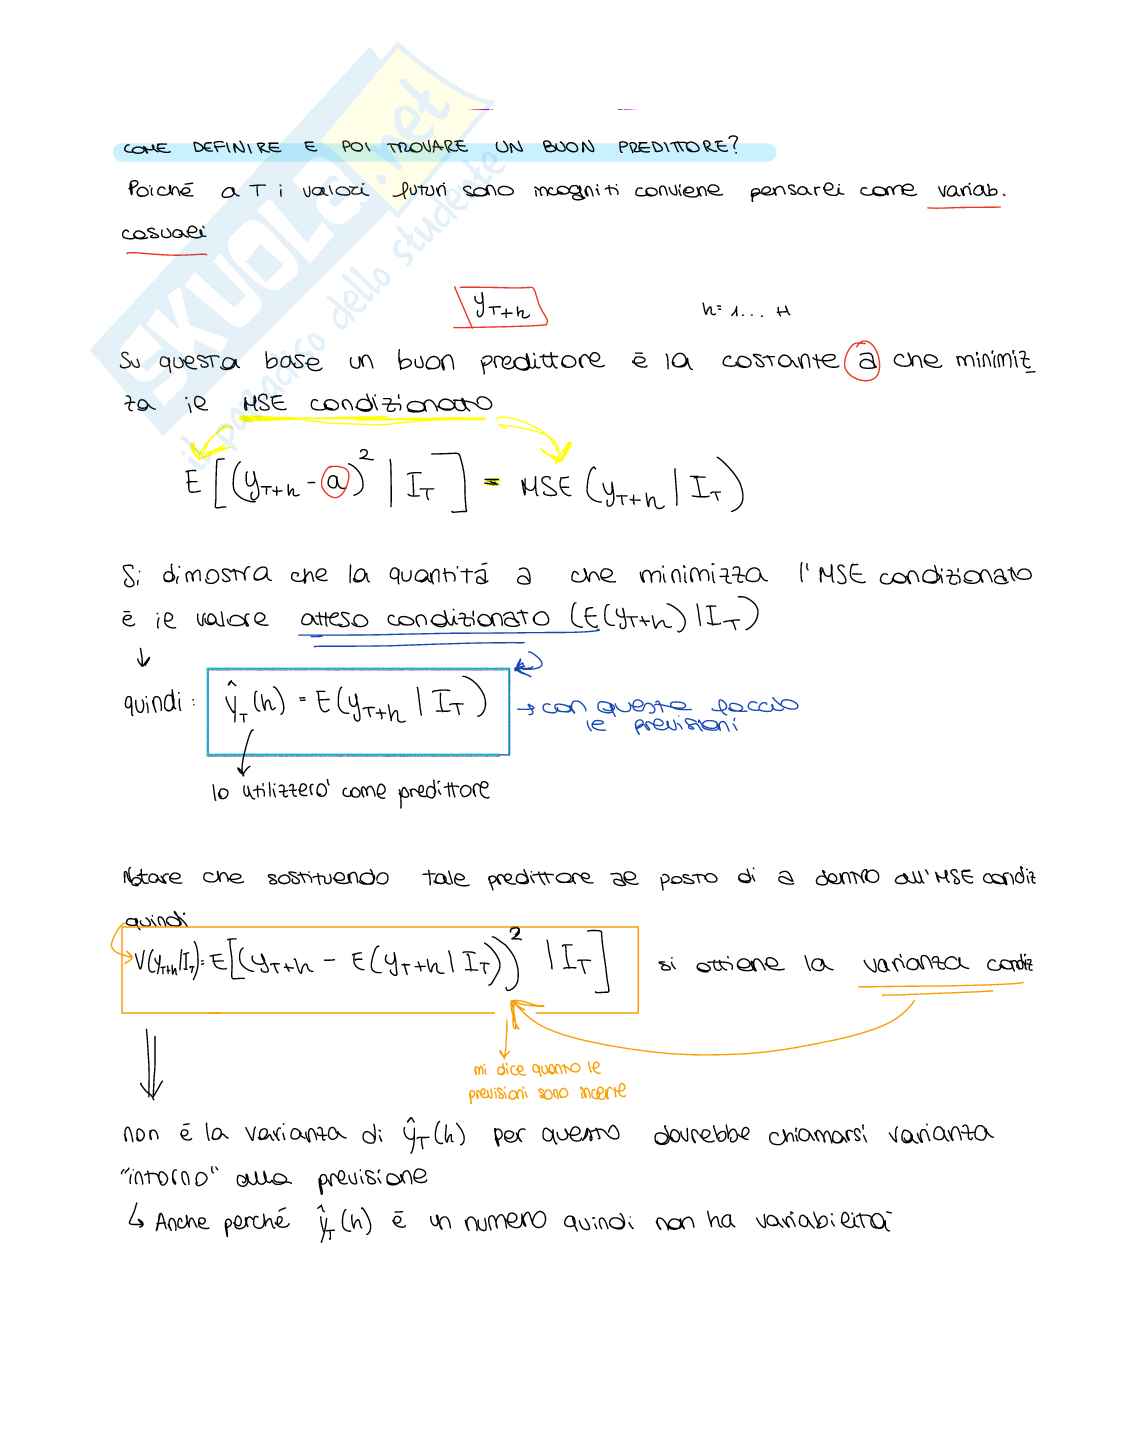 SKUOLA.net
il paradiso dello studente
COME DEFINIRE E POI TROVARE UN BUON PREDITTORE?
Poiché a T i valori futuri sono incogniti conviene pensarli come variab.
casuali
y_{T+h} h=1... H
Su questa base un buon predittore è la costante a che minimiz_
za il MSE condizionato
E[(y_{T+h} - a)² | I_T] = MSE (y_{T+h} | I_T)
Si dimostra che la quantità a che minimizza l'MSE condizionato
è il valore atteso condizionato (E(y_{T+h}) | I_T)
↓
quindi: ŷ_T(h) = E(y_{T+h} | I_T) → con questa faccio
le previsioni
lo utilizzerò come predittore
Notare che sostituendo tale predittore al posto di a dentro all'MSE condiz
quindi
V(y_{T+h}|I_T) = E[(y_{T+h} - E(y_{T+h} | I_T))² | I_T] si ottiene la varianza condiz
mi dice quanto le
previsioni sono incerte
non è la varianza di ŷ_T(h) per questo dovrebbe chiamarsi varianza
"intorno" alla previsione
↳ Anche perché ŷ_T(h) è un numero quindi non ha variabilità